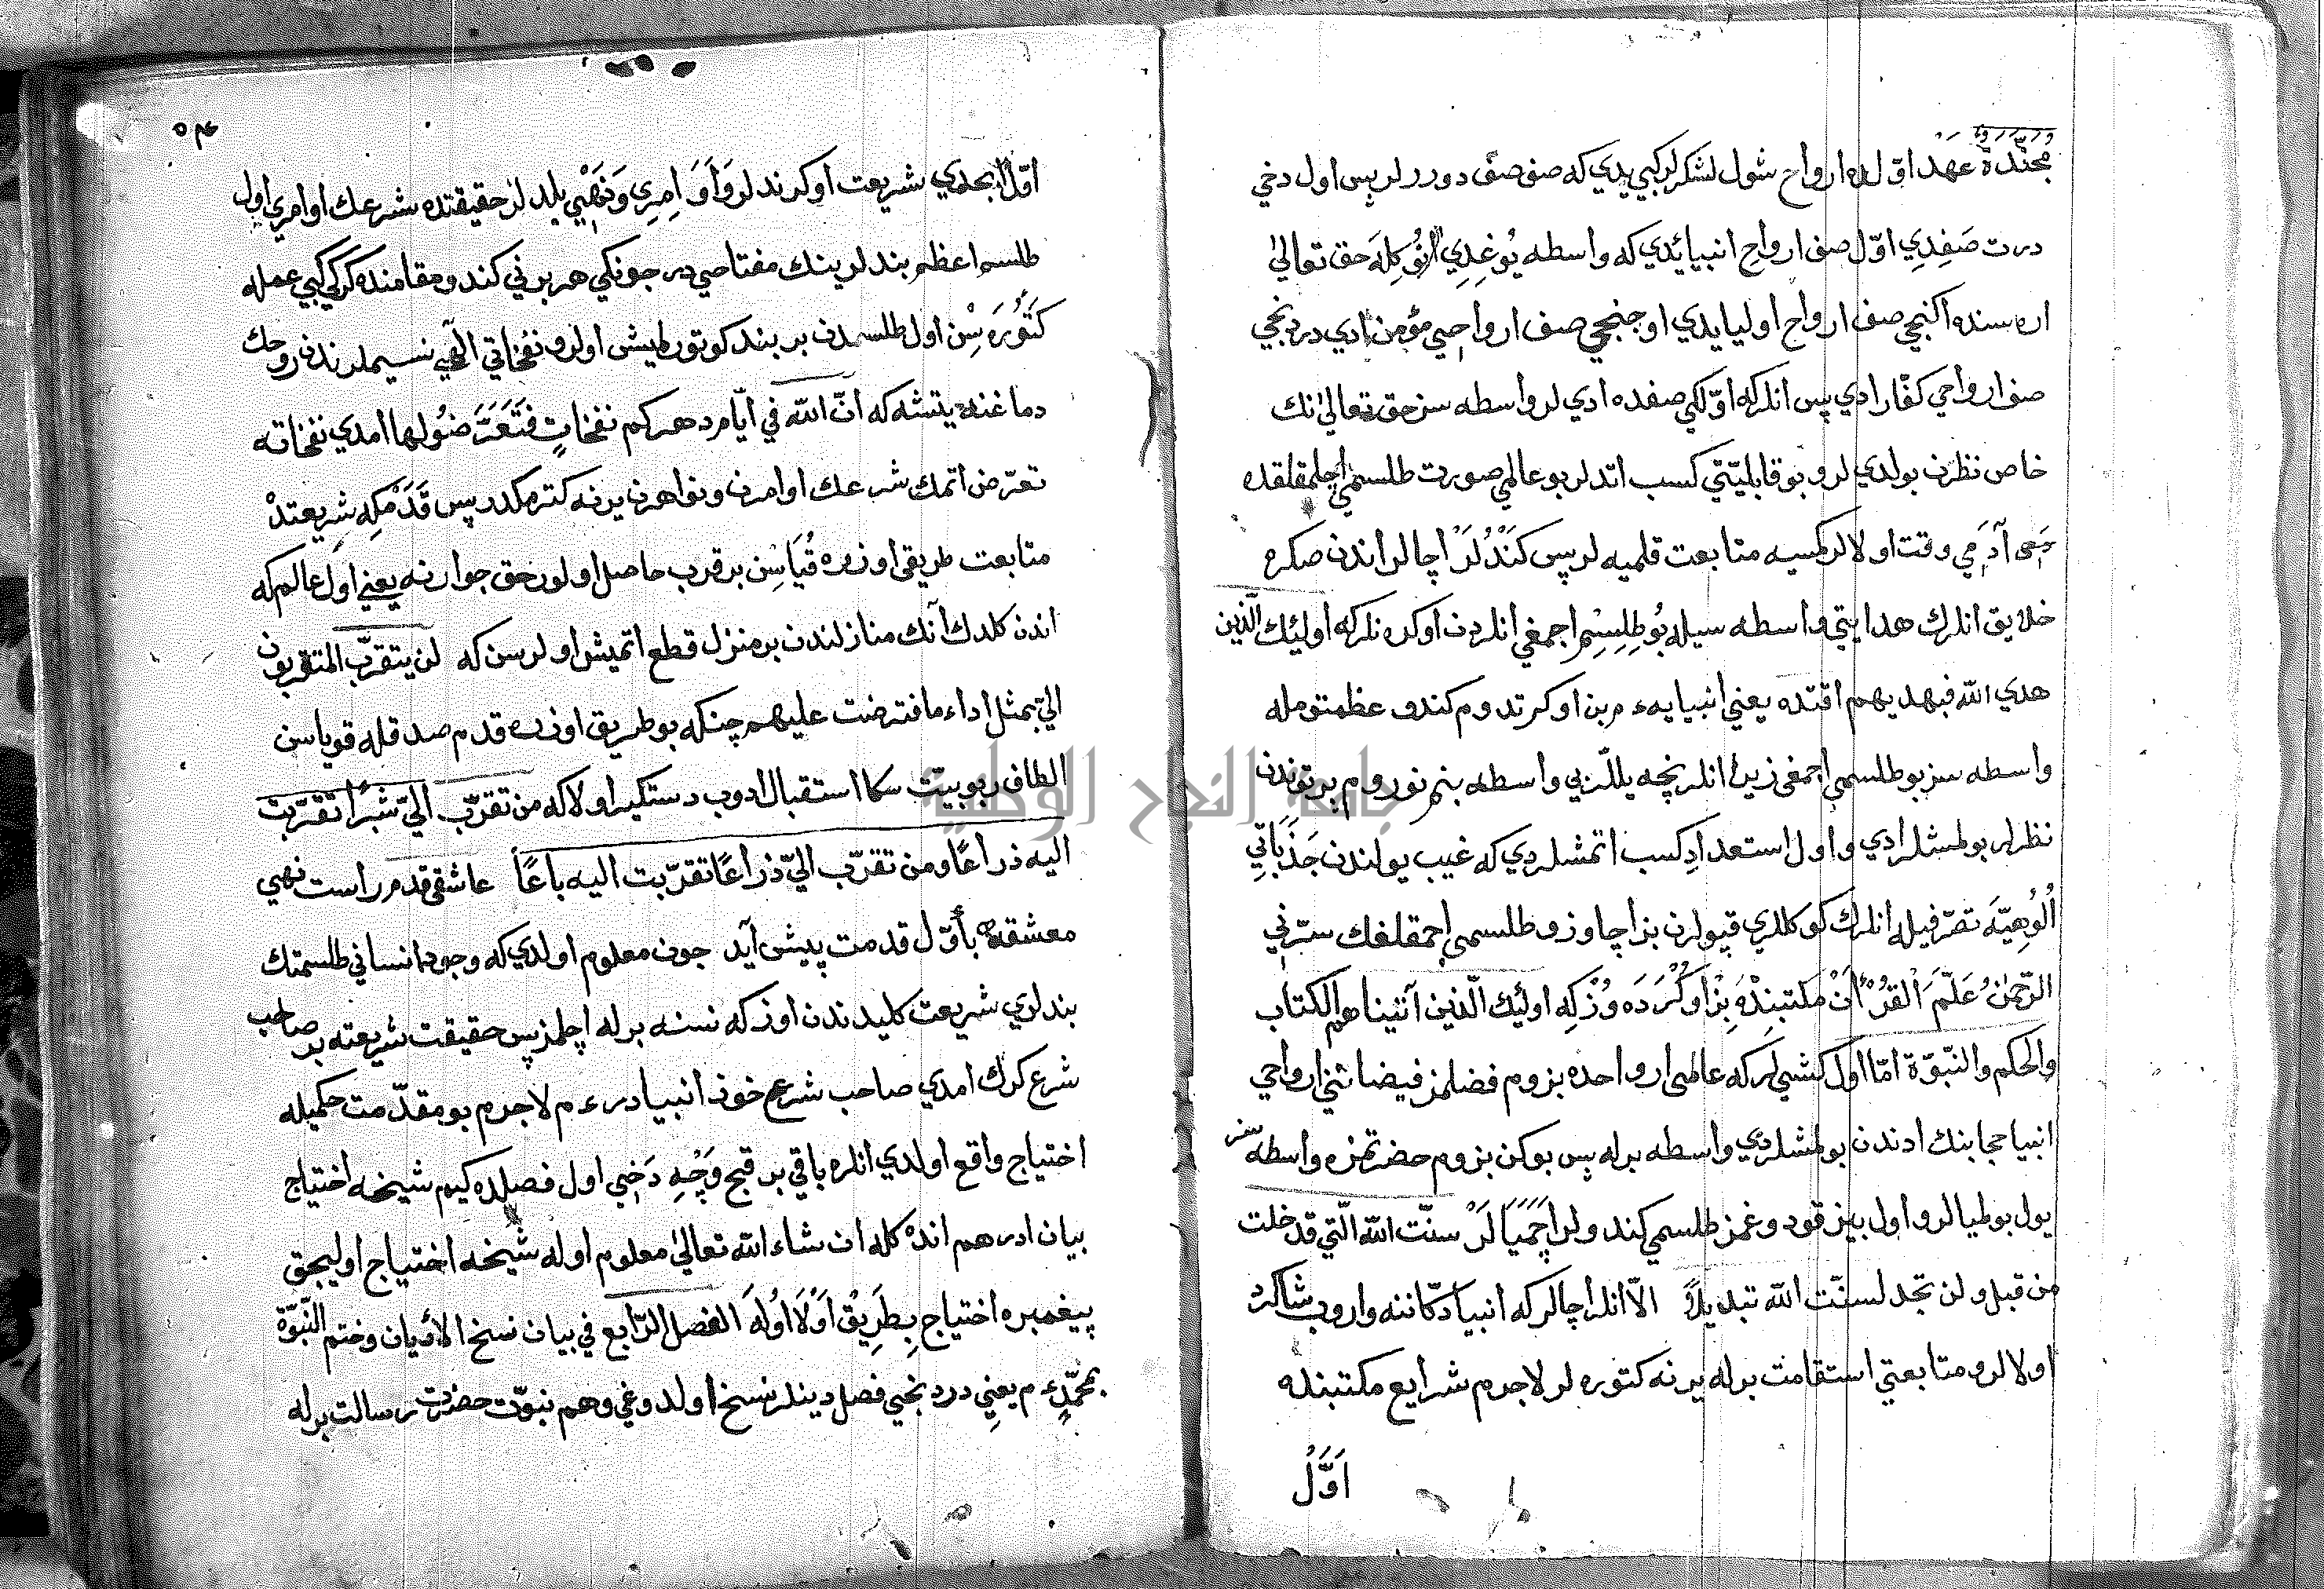 مجنّدة عهد اوّلده ارواح شول لشكرلر كبي يدي كه صف صف دوررلر پس اول دخي
درت صَفِدِي اوّل صف ارواح انبيائدي كه واسطه يُوغِدِي انُوكِلَه حق تعالىٰ
اره سنده اكنجي صف ارواح اوليا يدي اوجنجي صف ارواحي مؤمن ادي دردنجي
صف ارواحي كفّار ادي پس انلركه اوّلكي صفده ادي لر واسطه سز حق تعالىٰ نك
خاص نظرن بولدي لر و بو قابليّتي كسب اتدلر بو عالمي صورت طلسمي اچلمقلقده
آدمي وقت اولالر كمسيه متابعت قلميه لر پس كَنْدُلَرْ اچالر اندن صكره
خلايق انلرك هدايتي واسطه سيله بُو طِلِسْمِ اجمغي انلردن اوكره نلر كه اولئك الّذين
هدي الله فبهديهم اقتده يعني انبيايه ءم بن اوكرتدوم كندو عظمتومله
واسطه سز بو طلسمي اجمغي زيرا انلر نچه ييللر بي واسطه بنم نوروم پرتوندن
نظرلر بولمشلر ادي و اول استعداد كسب اتمشلردي كه غيب يولندن جَذَبَاتِي
اُلُوهِيَّه تصرّفيله انلرك كوكللري قپولرن بز اچاوز و طلسمي اچمقلغك سرّني
الرّحمنُ عَلَّمَ الْقُرْاٰنَ مكتبِنْدَه بِزْ اَوكْرَدَه وُزْ كِه اولئك الّذين آتيناهم الكتاب
والحكم والنّبوّة امّا اول كشي لر كه عالمي ارواحده بزوم فضلمز فيضانني ارواحي
انبيا حجابنك ادندن بولمشلردي واسطه برله پس بوكن بزوم حضرتمزه واسطه سز
يول بولميالر و اول بيز قودوغمز طلسمي كندولر اچَمَيَالَرْ سنّت الله الّتي قد خلت
من قبل و لن تجد لسنّت الله تبديلاً الاّ انلر اچالر كه انبيا دكّاننه واروب شاكرد
اولالر و متابعتي استقامت برله يرنه كتوره لر لاجرم شرايع مكتبنده
اَوَّلْ
٥٤
اوّل ابجدي شريعت اوكرندلر و اَوَامِرِي وَنَهْيِي بلدلر حقيقتده شرعك اوامري اول
طلسم اعظم بندلرينك مفتاحي در چونكي هر برني كندو مقامنده كرك كبي عمله
كَتُورَه سِن اول طلسمدن بر بند كوتورلمش اولر و نفخاتي الٓهي نسيملرندن روحك
دماغنه يتشه كه انّ الله في ايّام دهركم نفخاتٍ فَتَعَرَّضُوا لها امدي نفخاته
تعرّض اتمك شرعك اوامرن و نواهرن يرنه كترمكدر پس قَدَمْكِه شريعتدْ
متابعت طريقي اوزره قُيَاسِن بر قرب حاصل اولور حق جوارنه يعني اول عالم كه
اندن كلدك آنك منازلندن بر منزل قطع اتميش اولرسن كه لن يتقرّب المتقربون
اليّ بمثل اداء ما افترضت عليهم چنكه بو طريق اوزره قدم صدقله قوياسن
الطاف ربوبيّت سكا استقبال ادوب دستكير اولا كه من تقرّب اليّ شبرًا تقرّبت
اليه ذراعًا و من تقرّب اليّ ذراعًا تقرّبت اليه باعًا عاشقي قدم راست نهي
معشقه باوّل قدمت پيش آيد چون معلوم اولدي كه وجود انساني طلسمتك
بندلري شريعت كليدندن اوز كه نسنه برله اچلمز پس حقيقت شريعته بر صاحب
شرع كرك امدي صاحب شرع خود انبيادر ءم لاجرم بو مقدّمت حكميله
احتياج واقع اولدي انلره باقي بر قچ وَجْهِ دَخِي اول فصلده كيم شيخه احتياج
بيان ادرهم انده كله ان شاء الله تعالىٰ معلوم اوله شيخه احتياج اوليجق
پيغمبره احتياج بِطَرِيْقِ اَوْلَا اُولَه الفصل الرّابع في بيان نسخ الاديان و ختم النّبوّة
بمحمّد ءم يعني دردنجي فصل دينلر نسخ اولدوغي و هم نبوّت حضرت رسالت برله